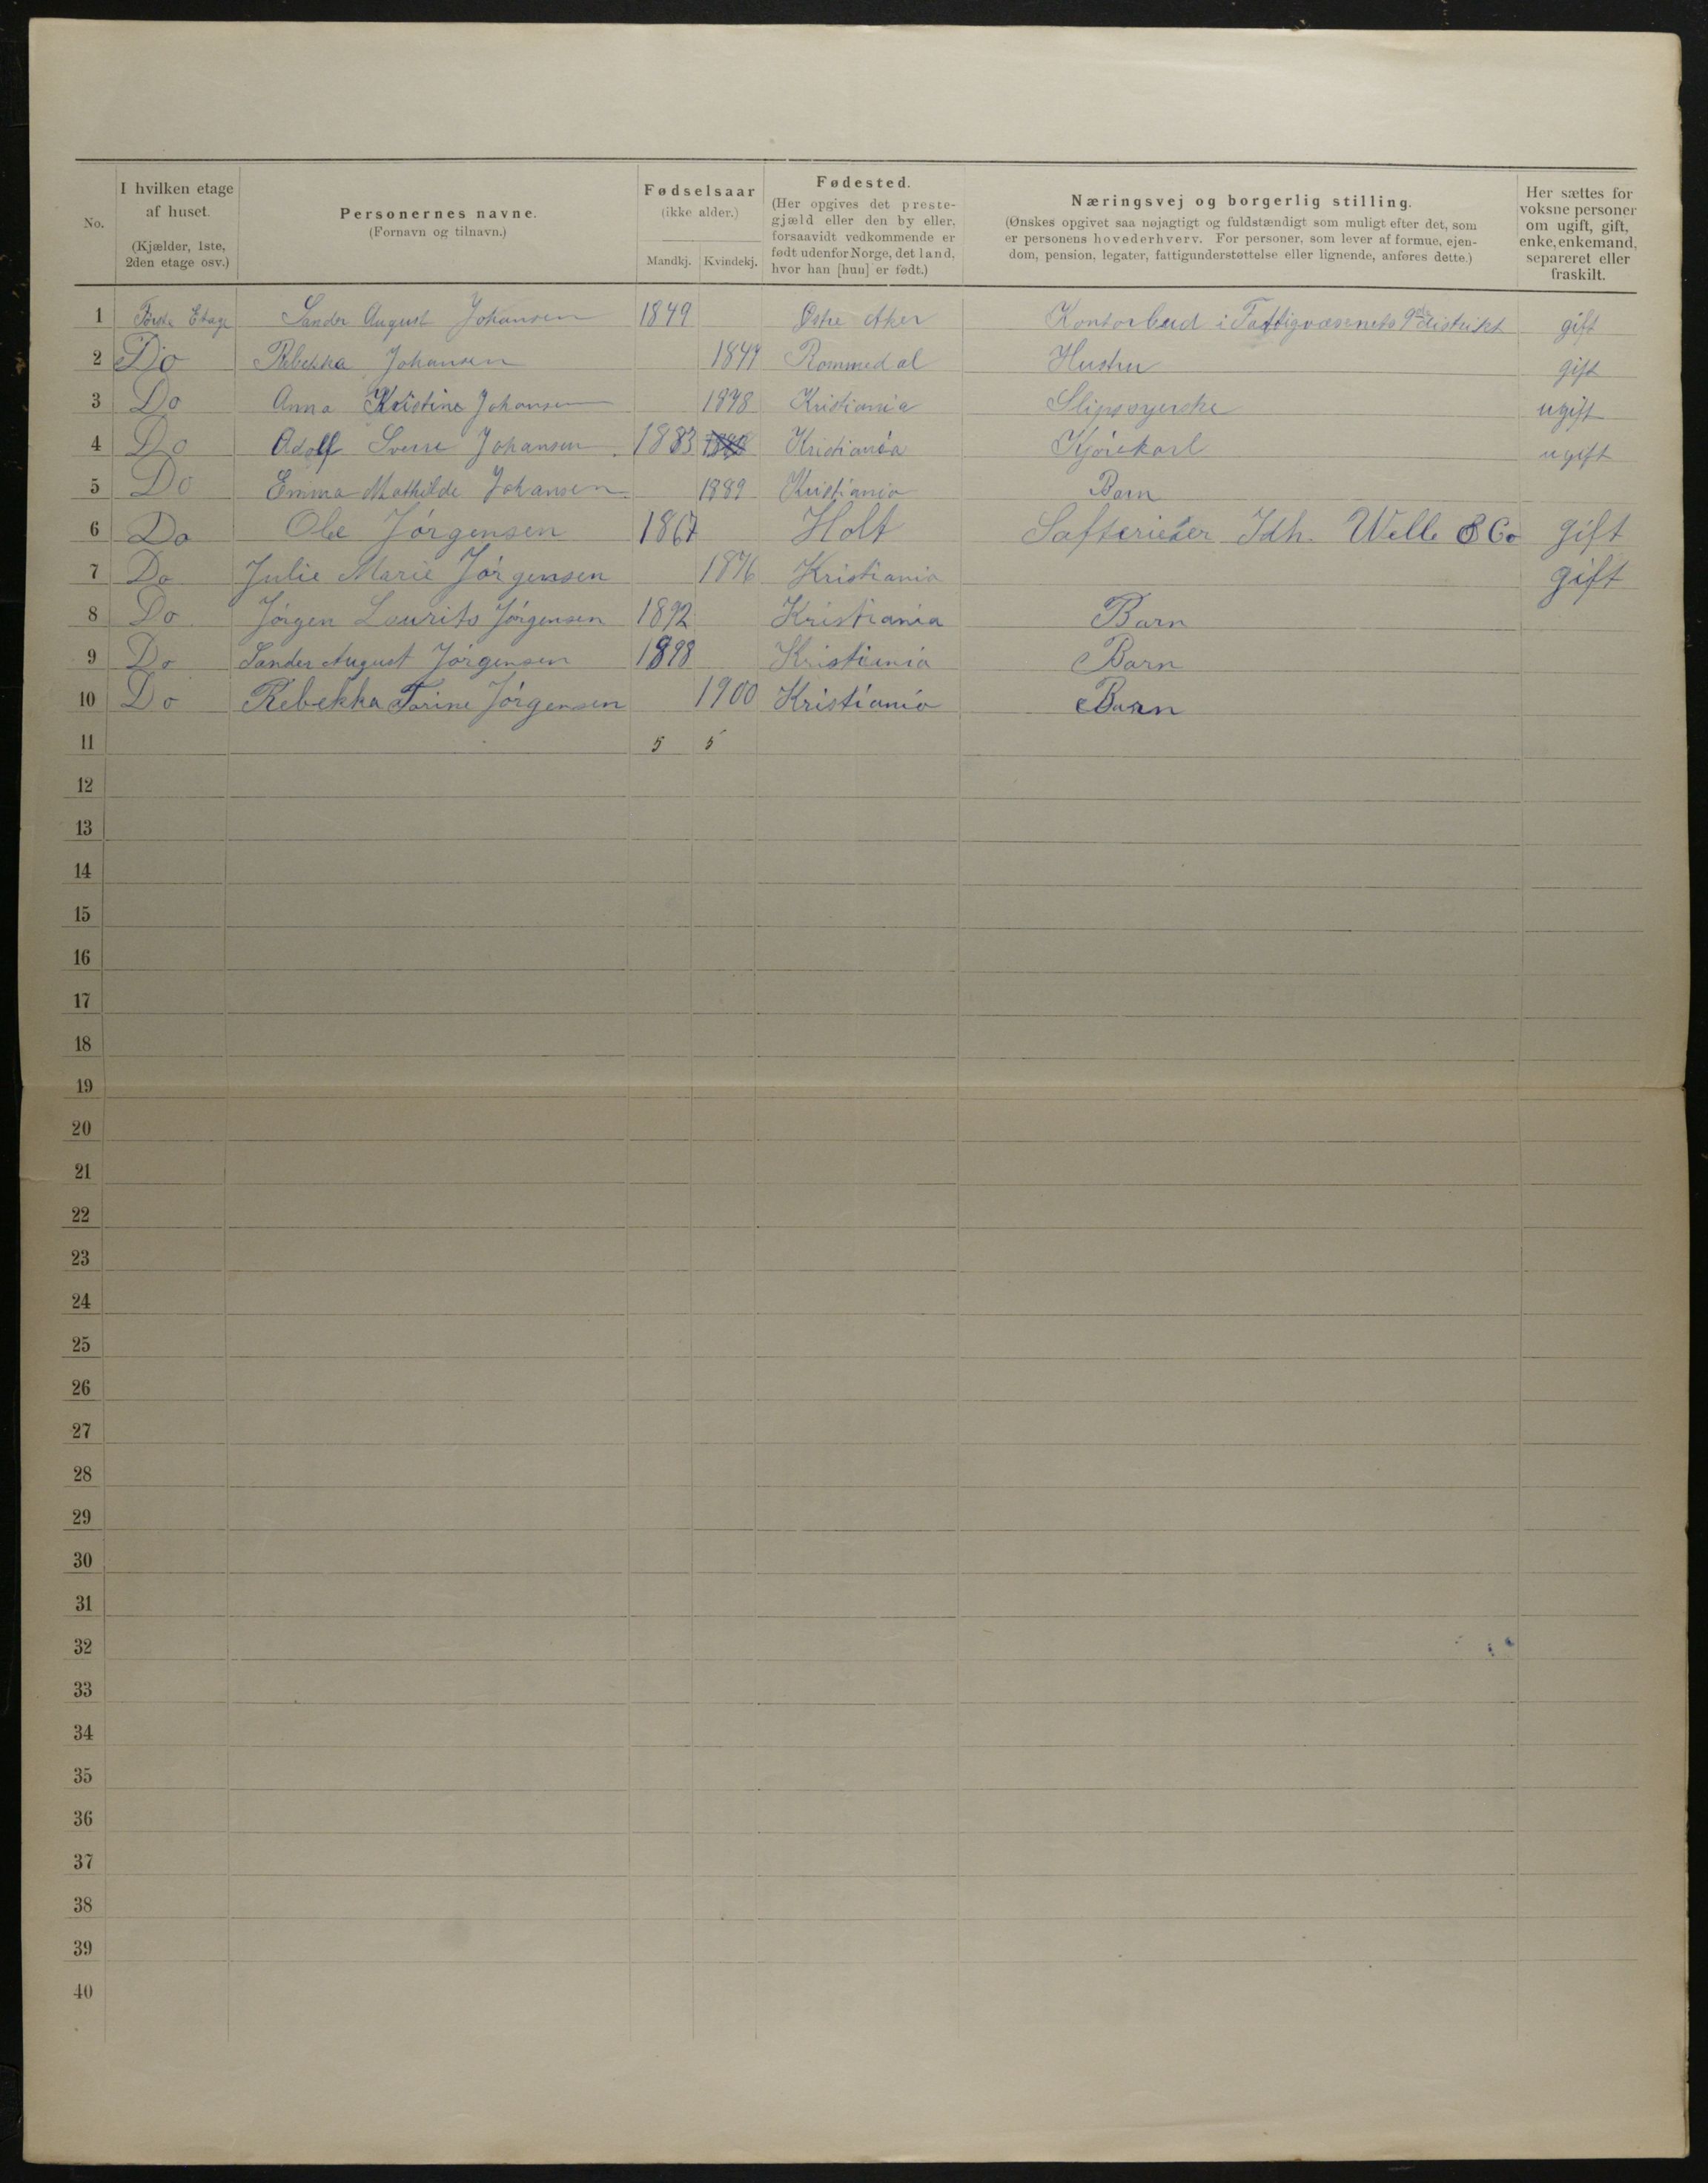 No.
I hvilken etage af huset.
(Kjælder, 1ste, 2den etage osv.)
Personernes navne.
(Fornavn og tilnavn.)
Fødselsaar
(ikke alder.)
Mandkj. Kvindekj.
Fødested.
(Her opgives det preste-
gjæld eller den by eller,
forsaavidt vedkommende er
født udenfor Norge, det land,
hvor han [hun] er født.)
Næringsvej og borgerlig stilling.
(Ønskes opgivet saa nøjagtigt og fuldstændigt som muligt efter det, som
er personens hovederhverv. For personer, som lever af formue, ejen-
dom, pension, legater, fattigunderstøttelse eller lignende, anføres dette.)
Her sættes for
voksne personer
om ugift, gift,
enke, enkemand,
separeret eller
fraskilt.
1 Første Etage Sander August Johansen 1849 Østre Aker Kontorbud i Fattigvæsenets 9de distrikt gift
2 Do Rebekka Johansen Rommedal Hustru gift
3 Do Anna Kristine Johansen 1878 Kristiania Slipssyerske ugift
4 Do Adolf Sverre Johansen 1883 Kristiania Kjørekarl ugift
5 Do Emma Mathilde Johansen 1889 Kristiania Barn
6 Do Ole Jørgensen 1867 Holt Welle & Co gift
7 Do Julie Marie Jørgensen 1876 Kristiania gift
8 Do Jørgen Laurits Jørgensen 1892 Kristiania Barn
9 Do Sander August Jørgensen 1898 Kristiania Barn
10 Do Rebekka Torine Jørgensen 1900 Kristiania Barn
11 5 5
12
13
14
15
16
17
18
19
20
21
22
23
24
25
26
27
28
29
30
31
32
33
34
35
36
37
38
39
40